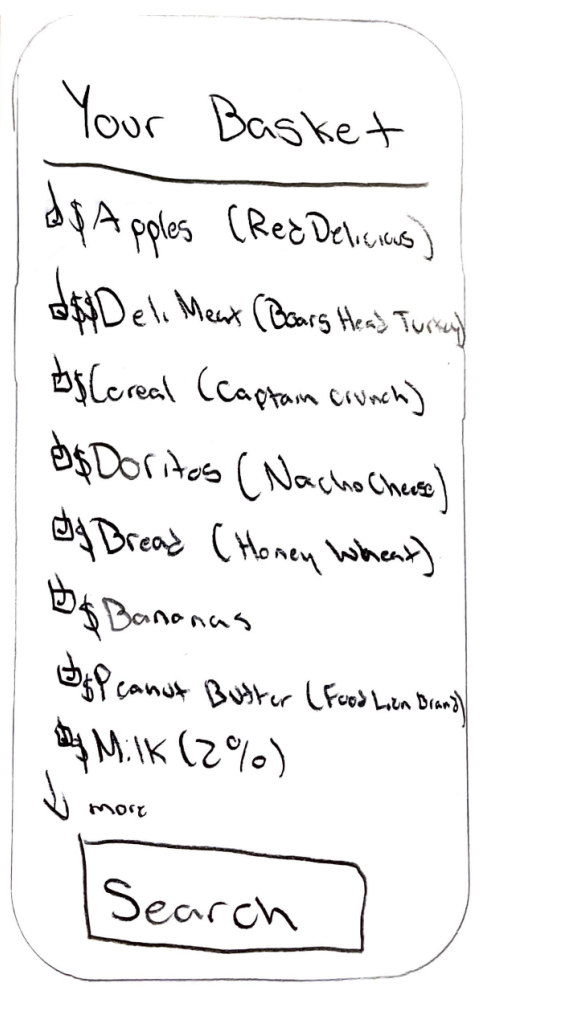 Your Basket
☑ $ Apples (Red Delicious)
☑ $$ Deli Meat (Boars Head Turkey)
☑ $ Cereal (Captain Crunch)
☑ $ Doritos (Nacho Cheese)
☑ $ Bread (Honey Wheat)
☑ $ Bananas
☑ $ Peanut Butter (Food Lion Brand)
☑ $ Milk (2%)
↓ more
Search